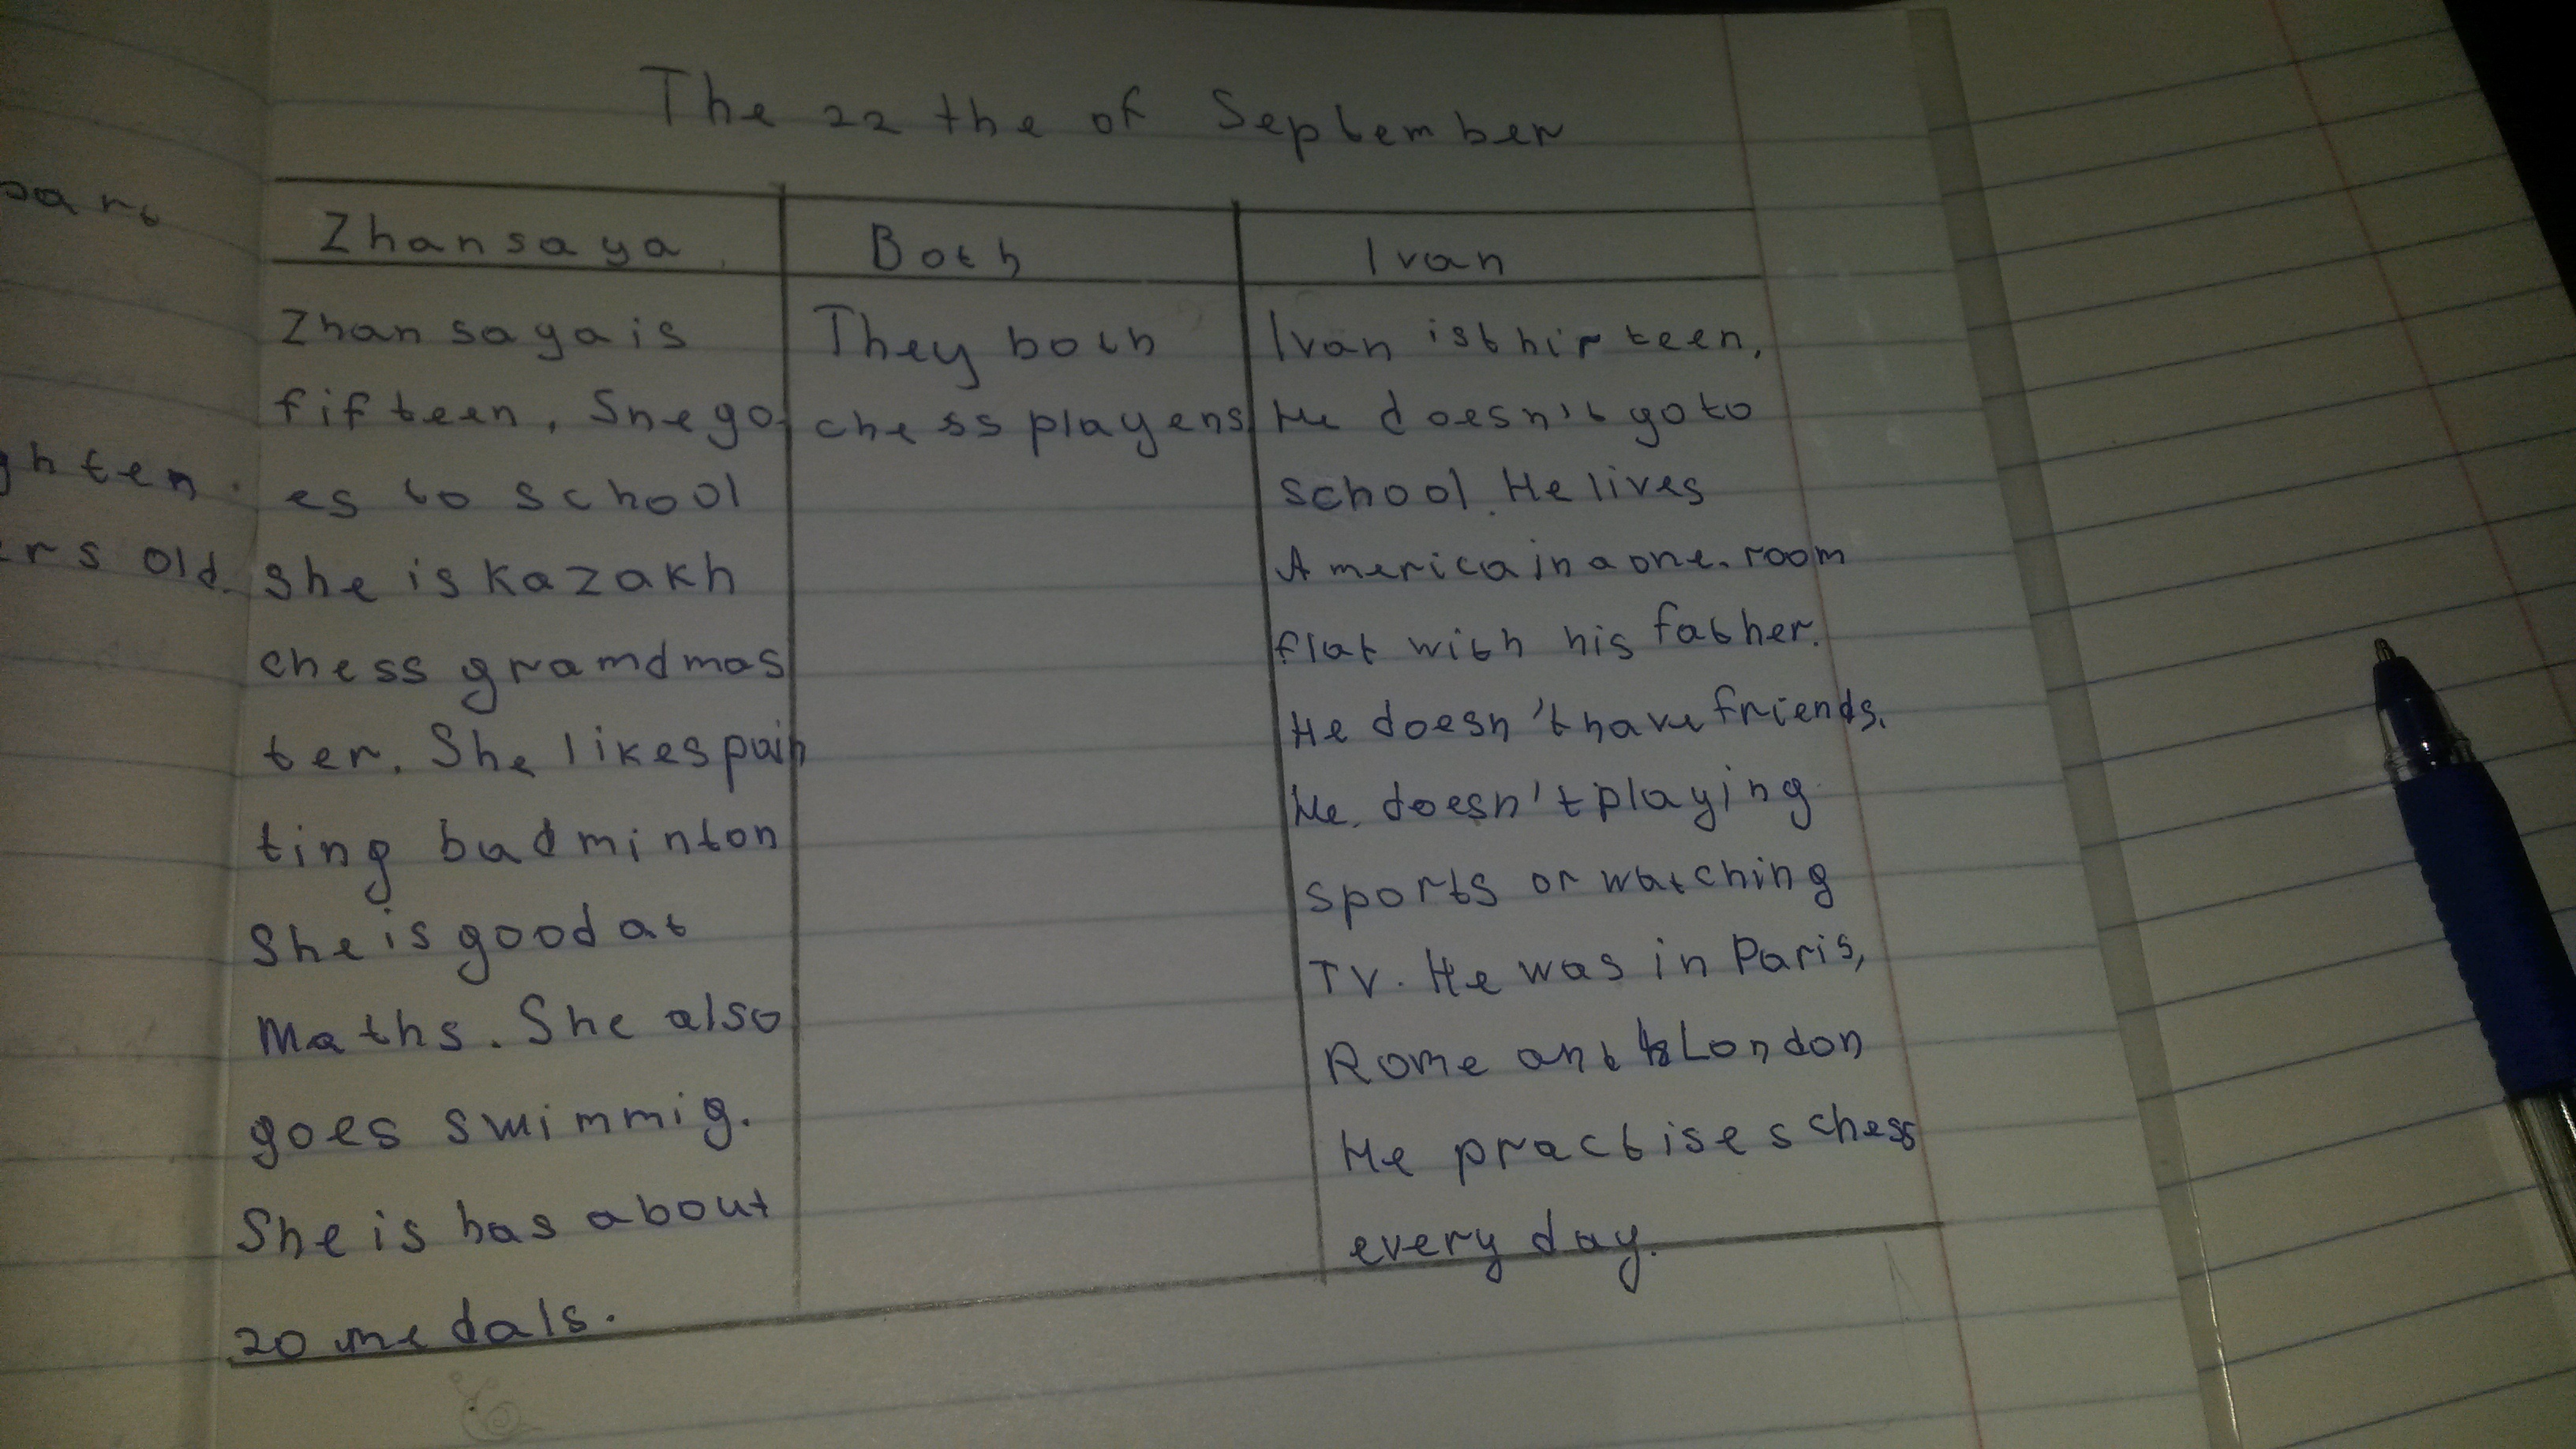 The 22 the of September
Zhansaya
Zhansaya is
fifteen. She go
es to school
She is kazakh
chess gramdmas
ter. She likes pain
ting badminton
She is good at
Maths. She also
goes swimmig.
She is has about
20 medals.
Both
They both
chess players
Ivan
Ivan is thirteen.
He doesn't go to
school. He lives
America in a one. room
flat with his father.
He doesn't have friends.
He. doesn't playing
sports or watching
TV. He was in Paris,
Rome ant London
He practises chess
every day.
ghten.
ers old.